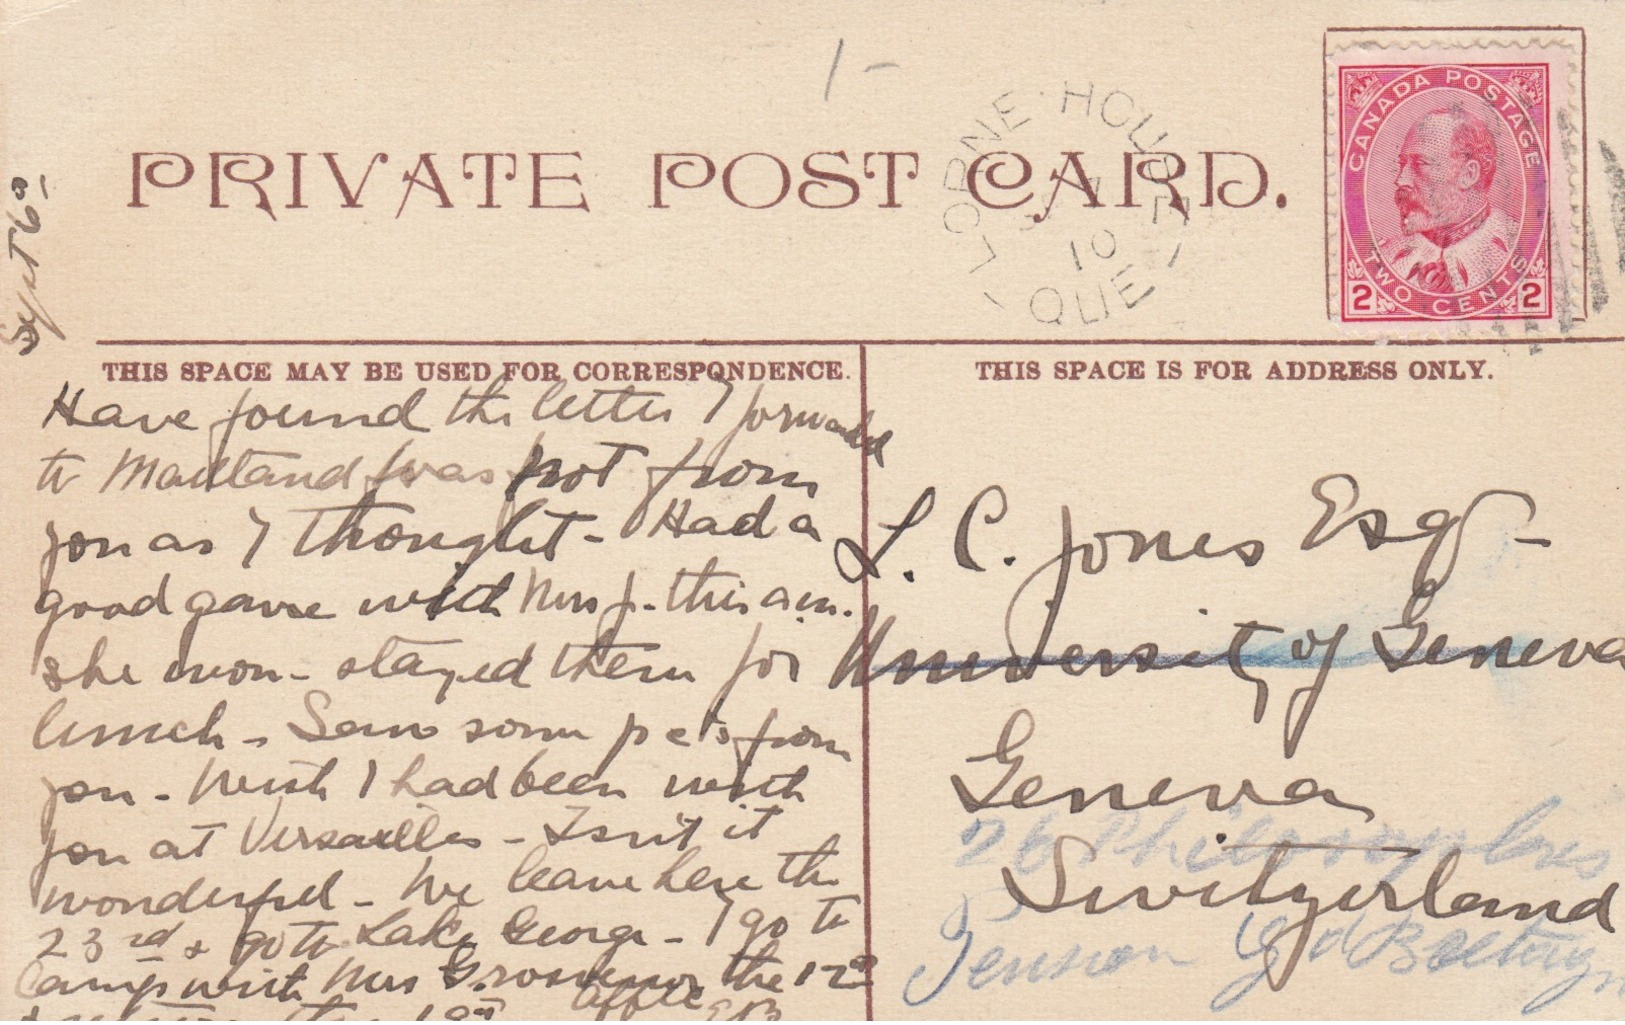 1-
LORNE HOUSE
7
10
QUE
CANADA POSTAGE
TWO CENTS
2 2
PRIVATE POST CARD.
Sept 6th
THIS SPACE MAY BE USED FOR CORRESPONDENCE.
Have found the letter I forwarded
to Maitland was not from
you as I thought - Had a
good game with Mrs J. this a.m.
she won - stayed there for
lunch - Saw some pcs from
you - Wish I had been with
you at Versailles - Isn't it
wonderful - We leave here the
23rd & go to Lake George - I go to
Camp with Mrs Grosvenor the 12th
& return the
THIS SPACE IS FOR ADDRESS ONLY.
L. C. Jones Esq -
University of Geneva
Geneva
Switzerland
26 Philosophes
Pension